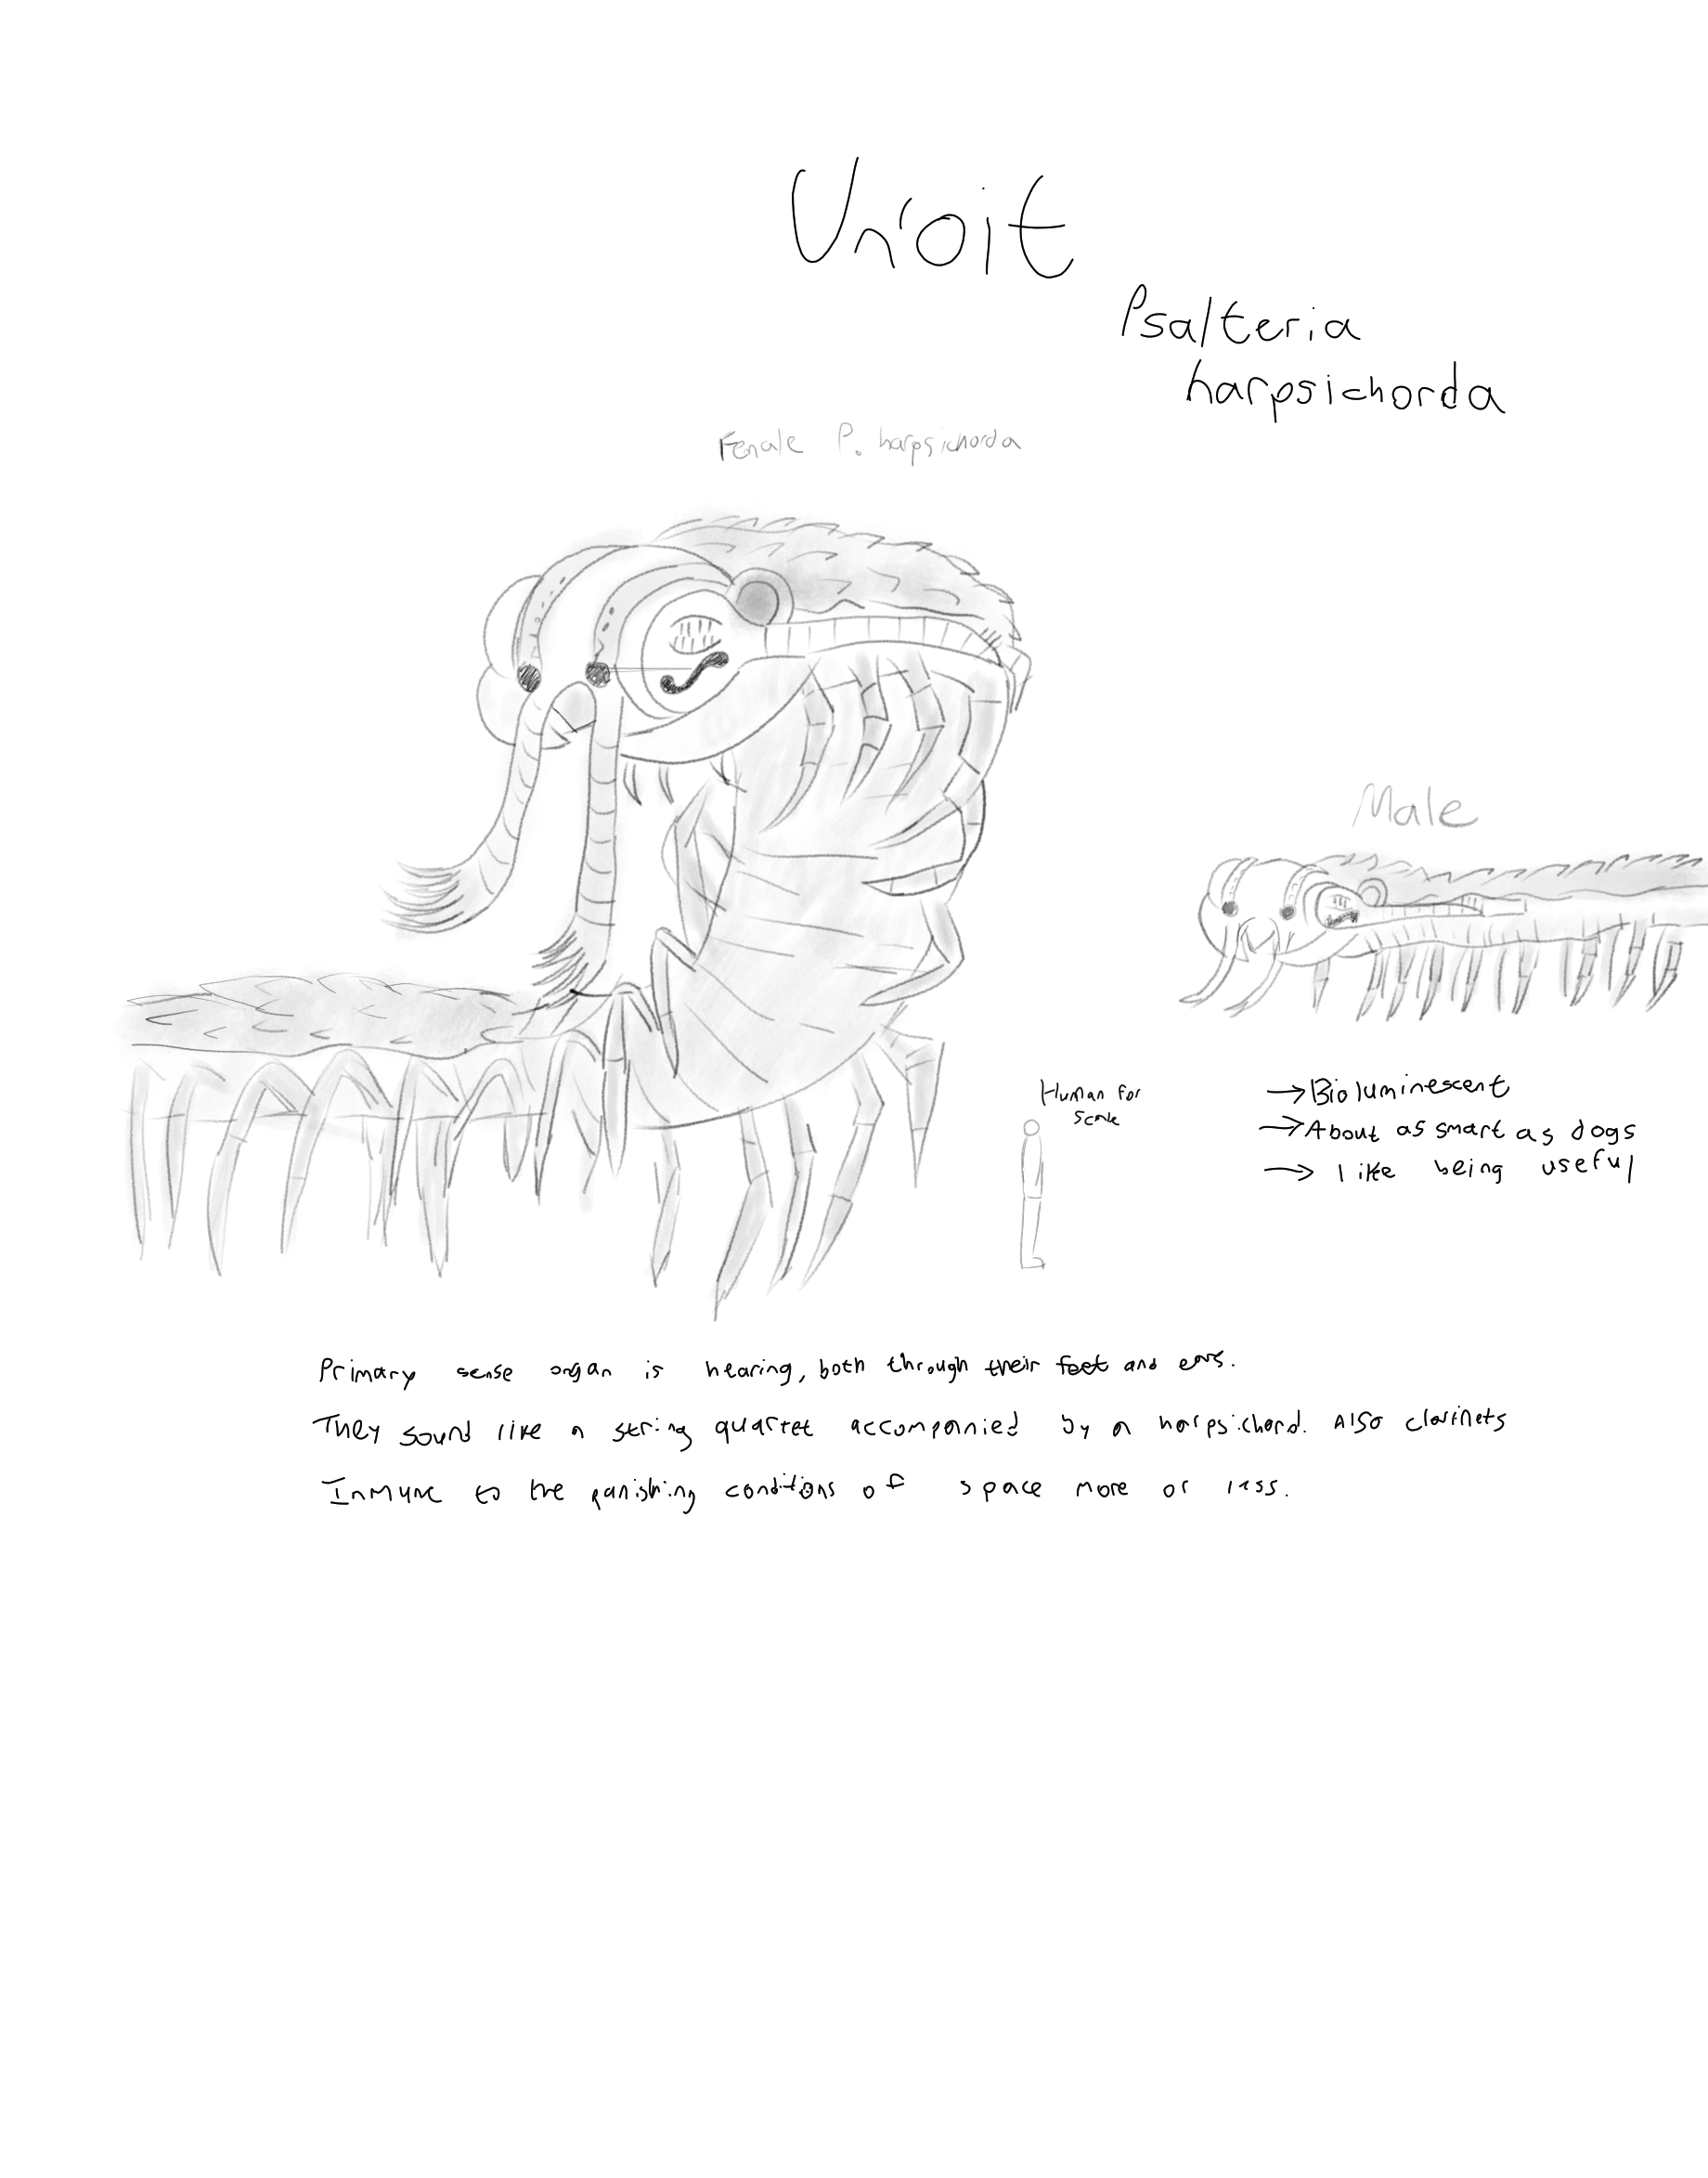 Un'oit
Psalteria
harpsichorda
Female P. harpsichorda
Male
Human for
scale
→Bioluminescent
→About as smart as dogs
→ like being useful
Primary sense organ is hearing, both through their feet and ears.
They sound like a string quartet accompanied by a harpsichord. Also clarinets
Immune to the punishing conditions of space more or less.